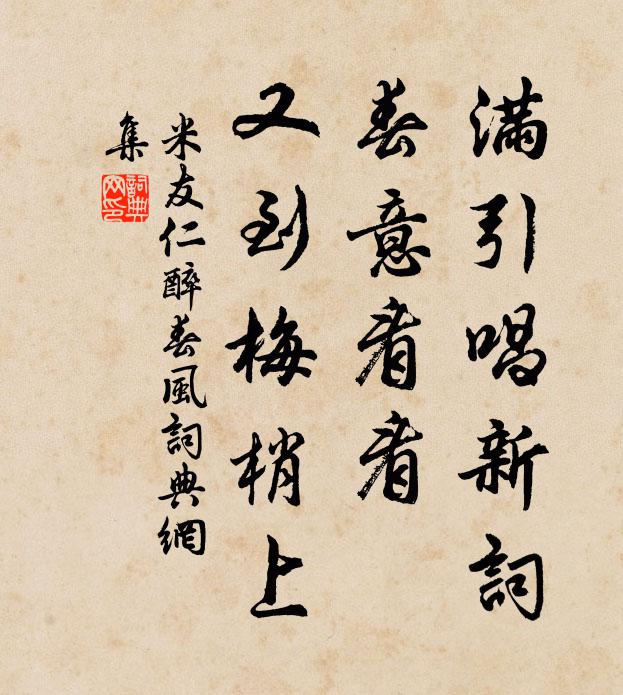 滿引唱新詞
春意看看
又到梅梢上
米友仁醉春風詞典網
集
詞典網印